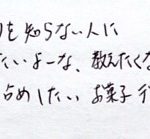 を知らない人に
たいよーな、教えたくな
占めしたい お菓子行